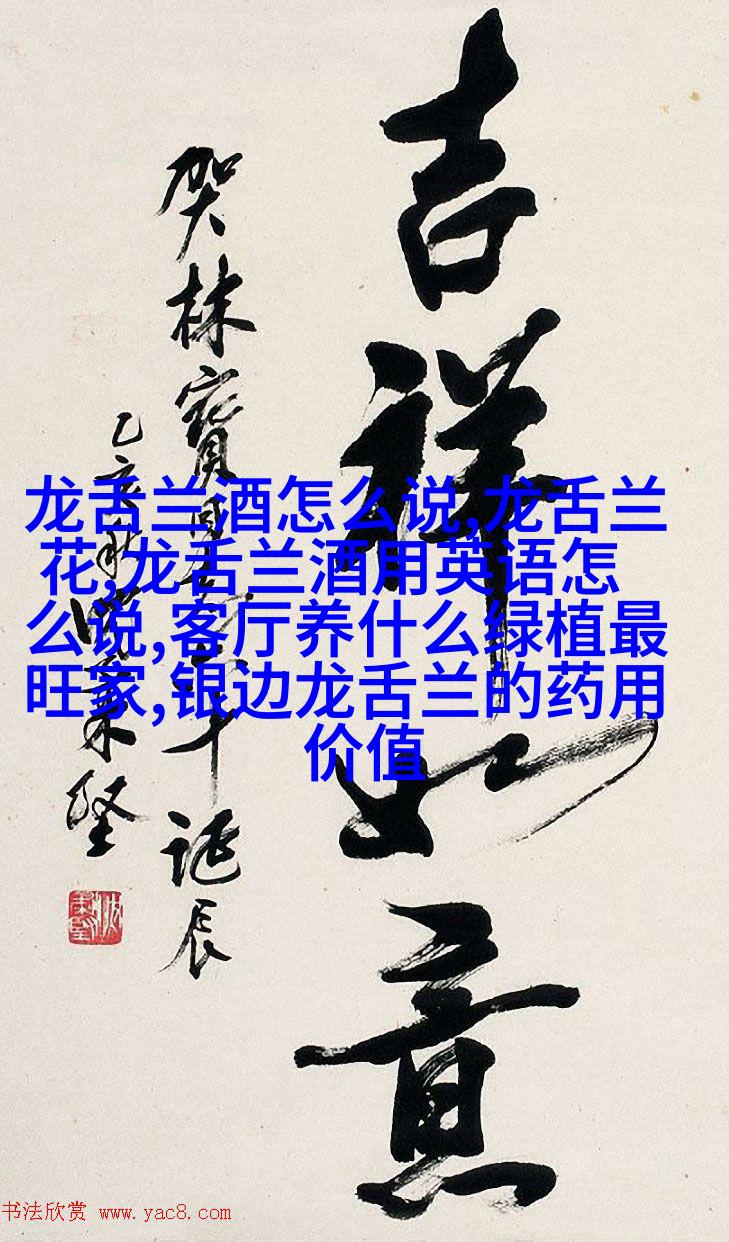 吉祥如意
贺林宝
诞辰
乙亥秋
龙舌兰酒怎么说,龙舌兰
花,龙舌兰酒用英语怎
么说,客厅养什么绿植最
旺家,银边龙舌兰的药用
价值
书法欣赏 www.yac8.com